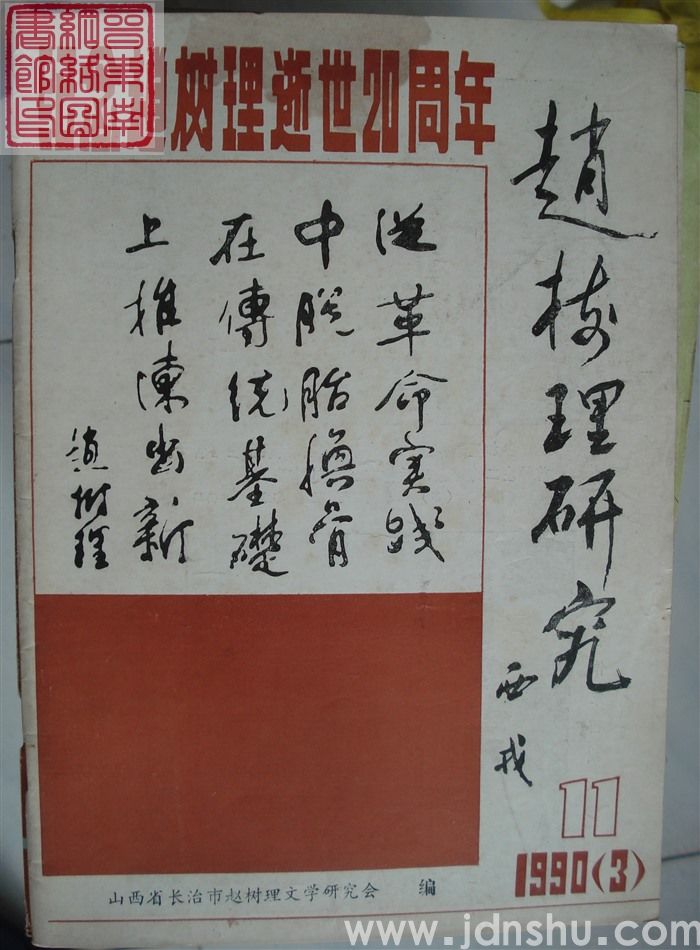 晋东南
網絡圖
書館印
树理逝世20周年
趙树理研究
西戎
从革命实践
中脱胎换骨
在傳统基礎
上推陳出新
趙树理
11
1990(3)
山西省长治市赵树理文学研究会 编
www.jdnshu.com